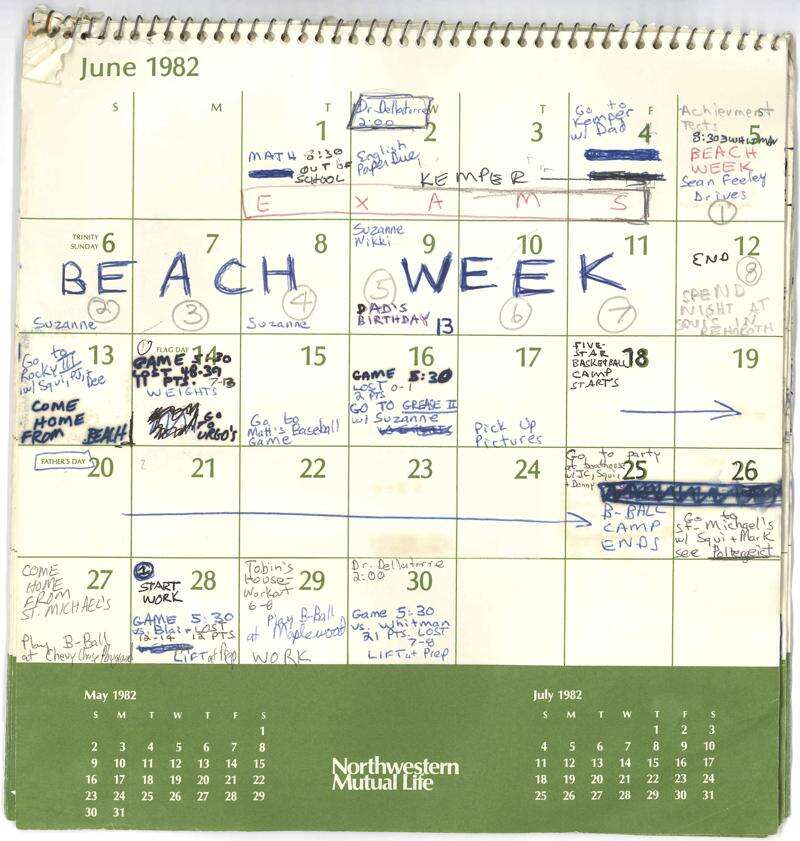 June 1982
S M T W T F S
1
MATH 8:30
OUT OF
SCHOOL
Dr. Dellatorre
2:00
2
English
Paper Due
3
KEMPER
Go to
Kemper
w/ Dad
4
Achievment
Tests
5
8:30
BEACH
WEEK
Sean Feeley
Drives
1
E X A M S
TRINITY
SUNDAY 6
2
Suzanne
7
3
8
4
Suzanne
BEACH WEEK
Suzanne
Nikki
9
5
DAD'S
BIRTHDAY
10
6
11
7
12
END
8
SPEND
NIGHT AT
SQUI'S IN
REHOBOTH
13
Go to
Rocky III
w/ Squi, PJ,
Dee
COME
HOME
FROM BEACH
FLAG DAY
14
GAME 5:30
LOST 48-39
11 PTS. 7-13
WEIGHTS
GO
TO
URGO'S
15
Go to
Matt's Baseball
Game
16
GAME 5:30
LOST 0-1
2 PTS
GO TO GREASE II
w/ Suzanne
17
Pick Up
Pictures
FIVE-
STAR
BASKETBALL
CAMP
STARTS
18
19
FATHER'S DAY
20
21
22
23
24
Go to party
at boathouse
w/ JC, Squi
+ Donny
25
B-BALL
CAMP
ENDS
26
Go to
St. Michael's
w/ Squi + Mark
see Poltergeist
COME
HOME
FROM
ST. MICHAEL'S
27
Play B-Ball
at Chevy Chase Playground
28
START
WORK
GAME 5:30
vs. Blair LOST
12-14 12 PTS
LIFT at Prep
Tobin's
House-
Workout
6-8
29
Play B-Ball
at Maplewood
WORK
Dr. Dellatorre
2:00
30
Game 5:30
vs. Whitman
21 Pts. LOST
7-8
LIFT at Prep
May 1982
S M T W T F S
1
2 3 4 5 6 7 8
9 10 11 12 13 14 15
16 17 18 19 20 21 22
23 24 25 26 27 28 29
30 31
Northwestern
Mutual Life
July 1982
S M T W T F S
1 2 3
4 5 6 7 8 9 10
11 12 13 14 15 16 17
18 19 20 21 22 23 24
25 26 27 28 29 30 31